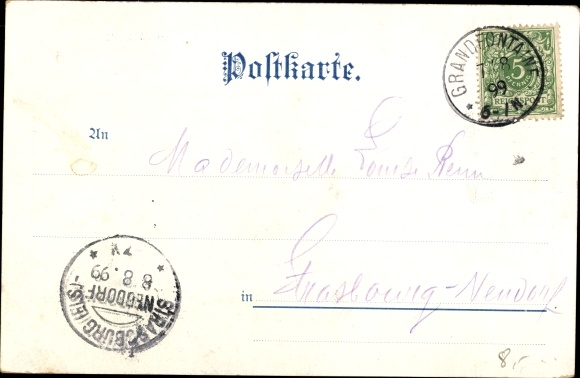 Postkarte.
GRANDFONTAINE
7 8
99
6-7N
5
REICHSPOST
An
Mademoiselle Louise
Strasbourg-Neudorf
in
STRASSBURG (ELS)
NEUDORF
8 8. 99
8,-